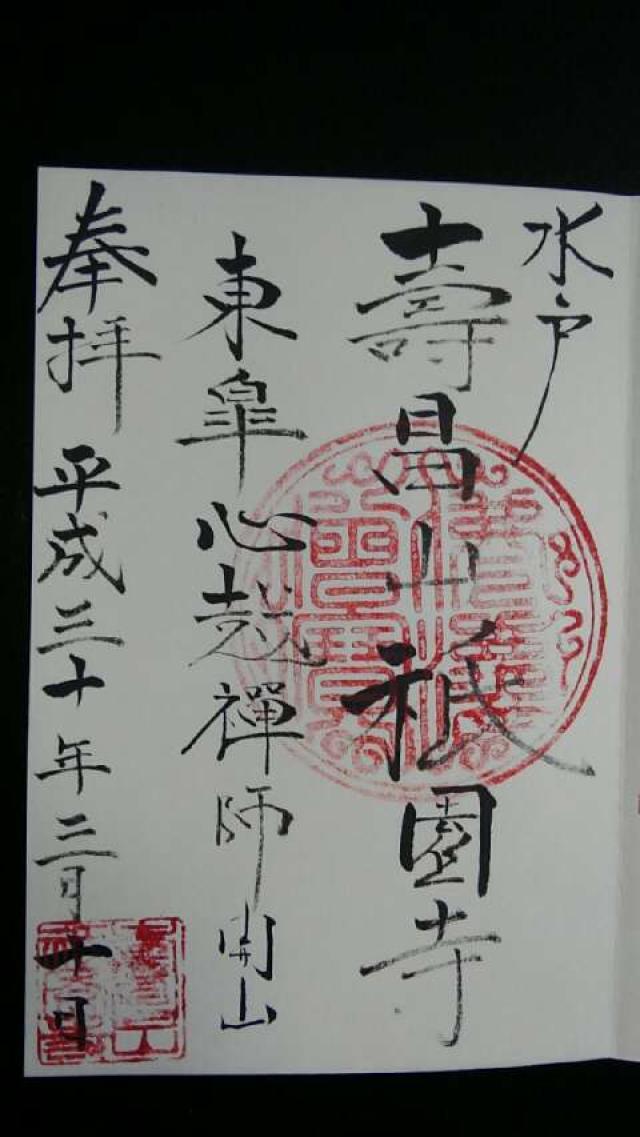 水戸
壽昌山祇園寺
東皐心越禪師開山
奉拝 平成三十年三月十日